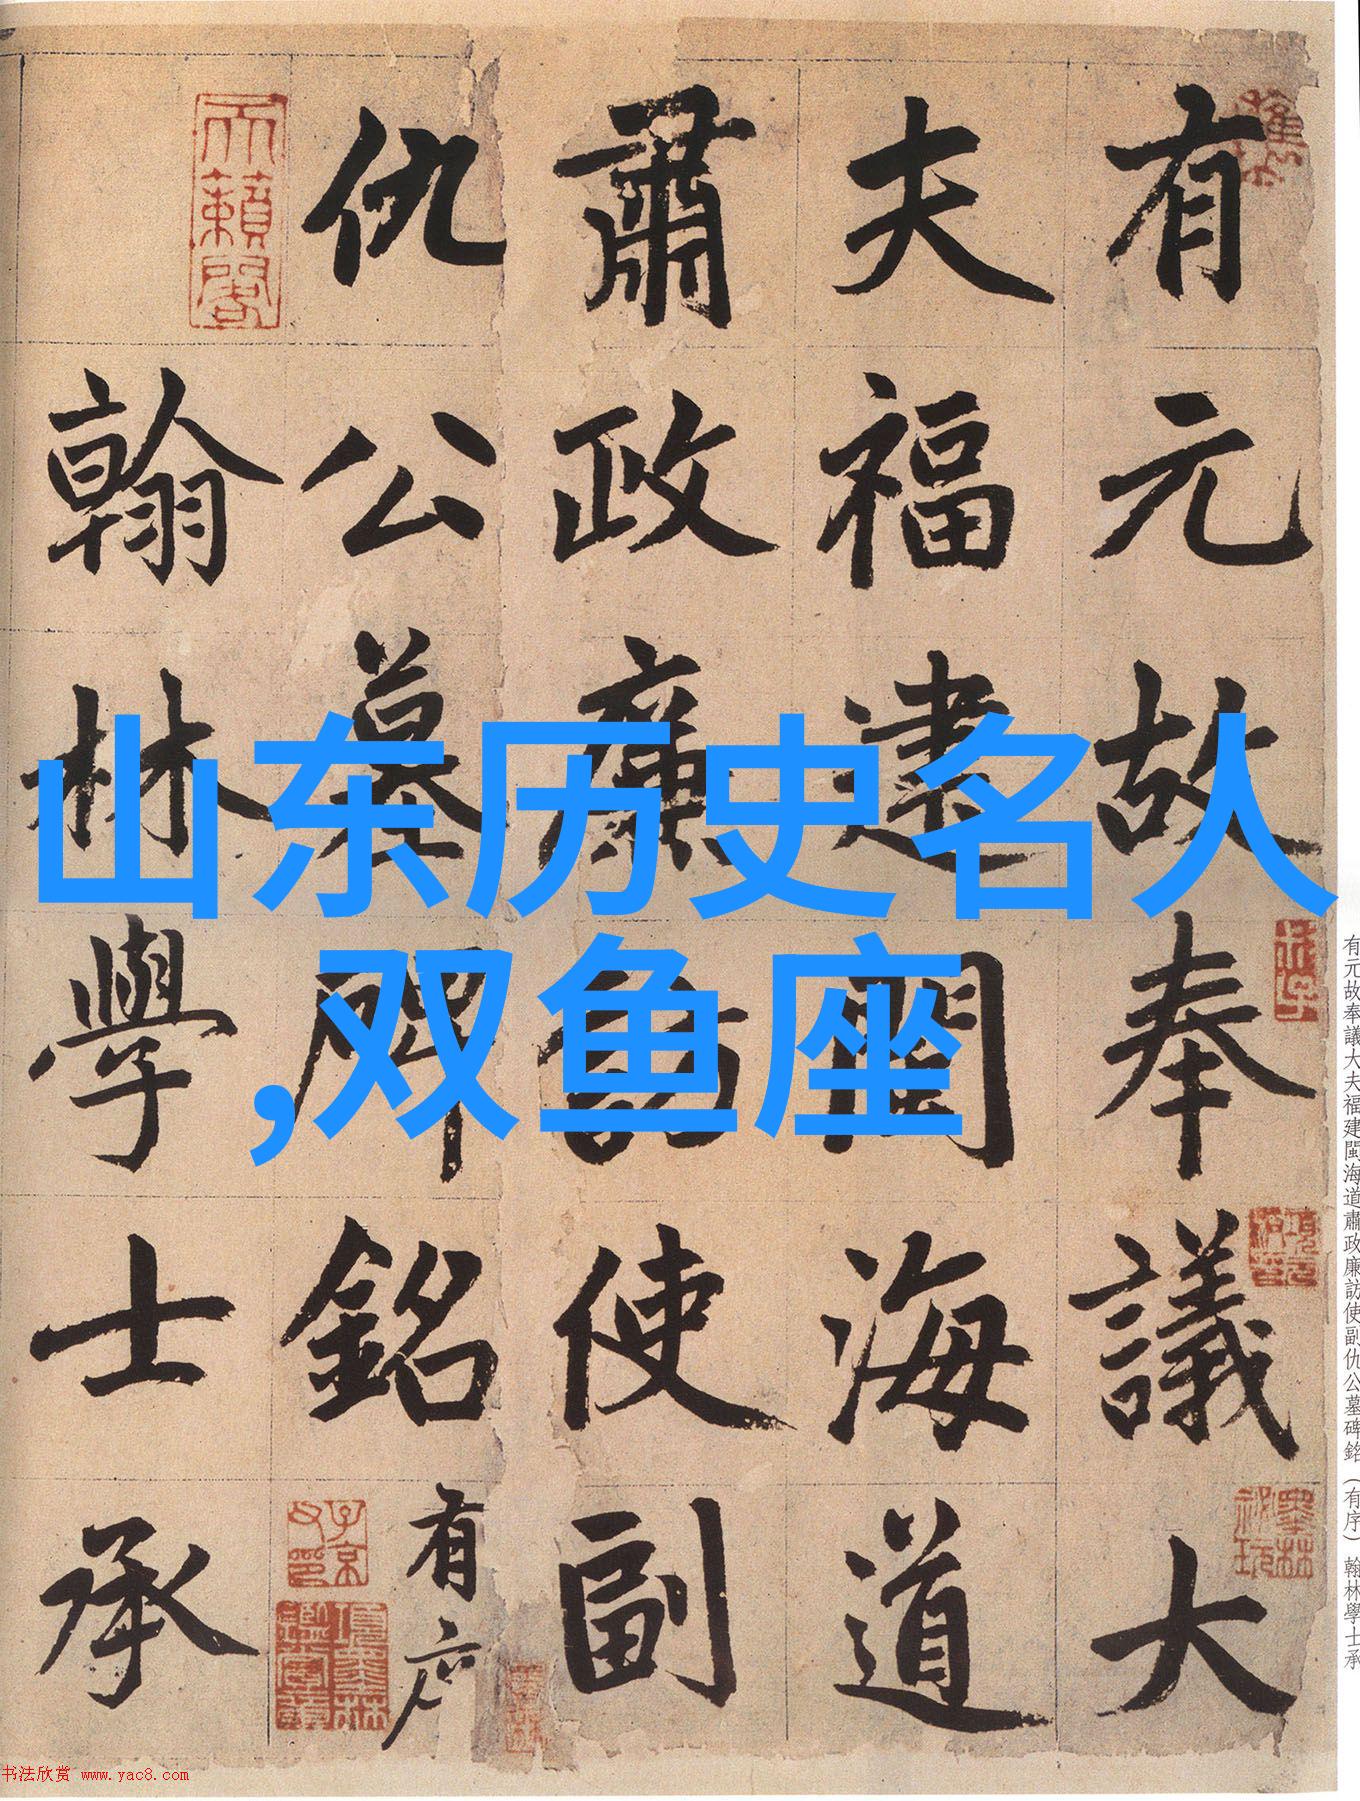 有元故奉議大
夫福建閩海道
肅政廉訪使副
仇公墓碑銘有序
翰林學士承
山东历史名人
,双鱼座
天籟閣
子京父印
項元汴印
墨林祕玩
有元故奉議大夫福建閩海道肅政廉訪使副仇公墓碑銘（有序）翰林學士承
书法欣赏 www.yac8.com